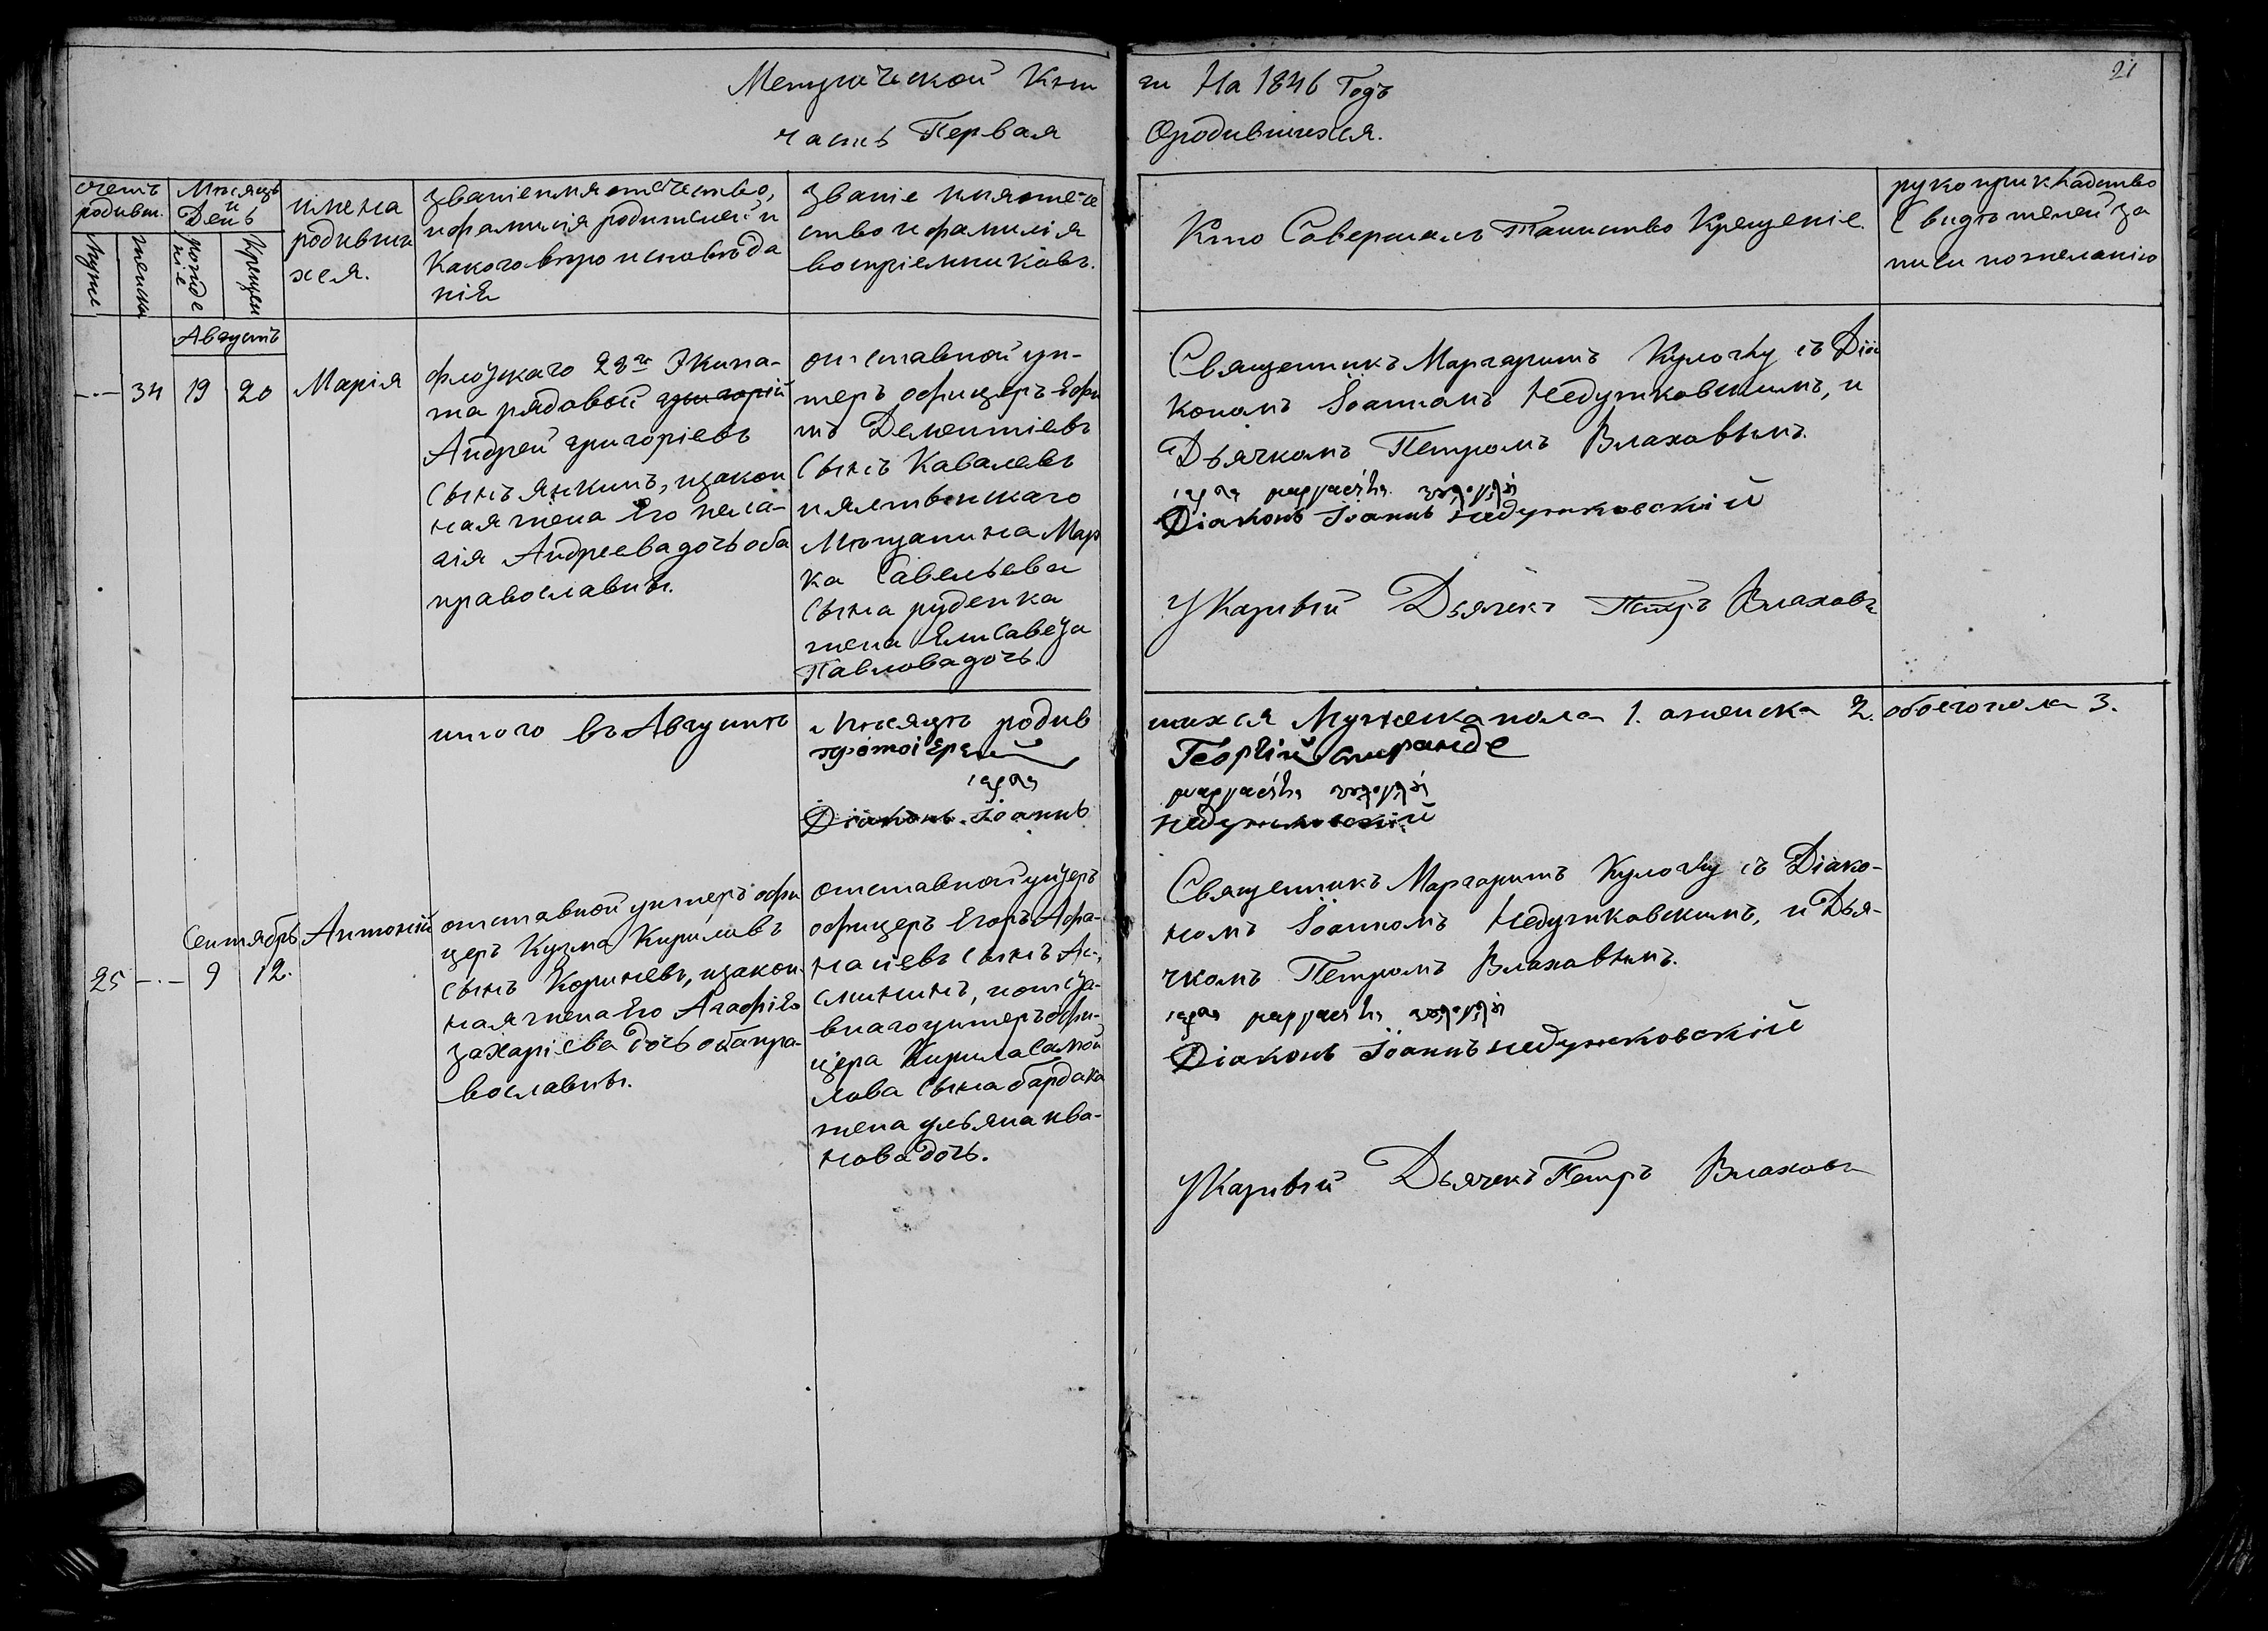 Метрической Кни
ги На 1846 Годъ
21
часть Первая
Ородившихся.
счетъ родивш.
Мужес
женска
Мѣсяцъ и День
рожде ніе
Крещен
имена
родивши
хся.
званіе имя отечество,
и фамилія родителей и
Какого вѣро исповѣда
нія
званіе имя отече
ство и фамилія
воспріемниковъ.
Кто Совершалъ Таинство Крещеніе.
рукоприкладство
Свидѣтелей за
писи по желанію
Августъ
-·- 34 19 20 Марія
флоцкаго 28го Экипа-
жа рядовой григорій
Андрей григоріевъ
Сынъ Якимъ, изакон
ная жена Его пела-
гія Андреева дочь оба
православны.
отставной ун-
теръ офицеръ Ефи
мъ Дементіевъ
Сынъ Кавалевъ
Мѣщанина Мар
ка Савельева
Сына руденка
жена Елисавеҭа
Павлова дочь.
Священникъ Маргаритъ Кулоглу съ Діа
кономъ Іоанномъ Недужковскимъ, и
Дьячкомъ Петромъ Влаховымъ.
Діаконъ Іоаннъ недужковскій
УКарпвый Дьячекъ Петръ Влаховъ
итого въ Августѣ
мѣсяцѣ родив
шихся Мужеска пола 1. аженска 2. обоего пола 3.
протоіерей
Георгій спиранде
Діаконъ Іоаннъ
недужковскій
Сентябрь
25 -·- 9 12. Антоній
отставной унтеръ офи
церъ Кузма Кириловъ
Сынъ Коринев, изакон
ная жена Его Агафія
захаріева дочь оба пра-
вославны.
отставной унтеръ
офицеръ Егоръ Афа-
насіевъ Сынъ Ас-
вного унтеръ офи-
цера Кирила Самой
лова Сына бардака
жена ульяна ива-
нова дочь.
Священникъ Маргаритъ Кулоглу съ Діако-
номъ Іоанномъ Недужковскимъ, и Дья-
чкомъ Петромъ Влаховымъ.
Діаконъ Іоаннъ недужковскій
УКарпвый Дьячекъ Петръ Влаховъ